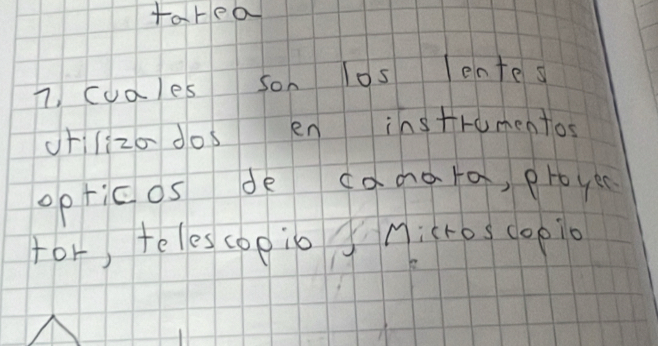 tarea
1. cuales son los lentes
utilizados en instrumentos
opticos de camara, proyec
tor, telescopio y Microscopio